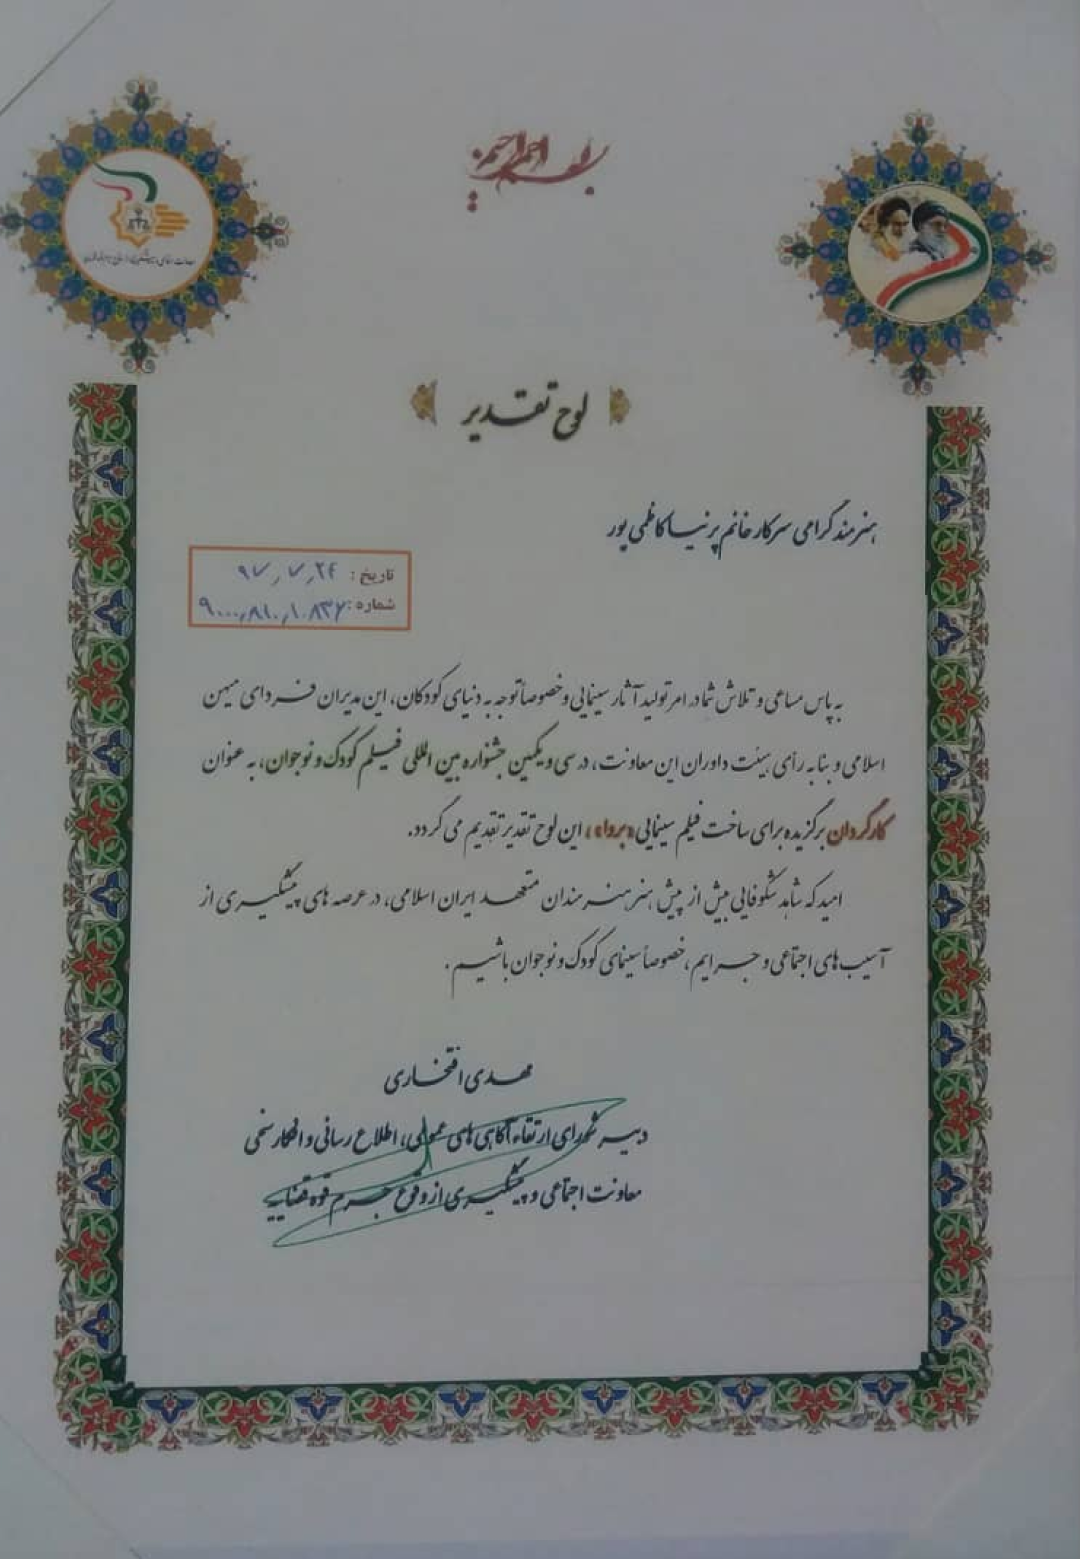 بسم الله الرحمن الرحیم
لوح تقدیر
هنرمند گرامی سرکار خانم پرنیا کاظمی پور
تاریخ: ۹۷٫۷٫۲۴
شماره: ۹۰۰۰٫۸۱۰٫۱۰۸۳۶
به پاس مساعی و تلاش شما در امر تولید آثار سینمایی و خصوصاً توجه به دنیای کودکان، این مدیران فردای میهن
اسلامی و بنا به رأی هیئت داوران این معاونت، در سی و یکمین جشنواره بین المللی فیلم کودک و نوجوان، به عنوان
کارگردان برگزیده برای ساخت فیلم سینمایی، این لوح تقدیر تقدیم می گردد.
امید که شاهد شکوفایی بیش از پیش هنر هنرمندان متعهد ایران اسلامی، در عرصه های پیشگیری از
آسیب های اجتماعی و جرایم، خصوصاً سینمای کودک و نوجوان باشیم.
مهدی افتخاری
دبیر شورای ارتقاء آگاهی های عمومی، اطلاع رسانی و افکارسنجی
معاونت اجتماعی و پیشگیری از وقوع جرم قوه قضاییه